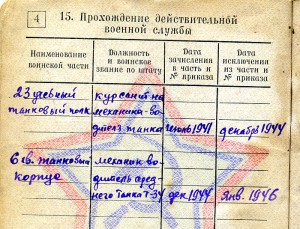 4
15. Прохождение действительной
военной службы
Наименование воинской части
Должность и воинское звание по штату
Дата зачисления в часть и № приказа
Дата исключения из части и № приказа
23 учебный
танковый полк
курсант на
механика-во-
дителя танка
июль 1941
декабрь 1944
6 гв. танковый
корпус
механик во-
дитель сред-
него танка Т-34
дек 1944
янв. 1946